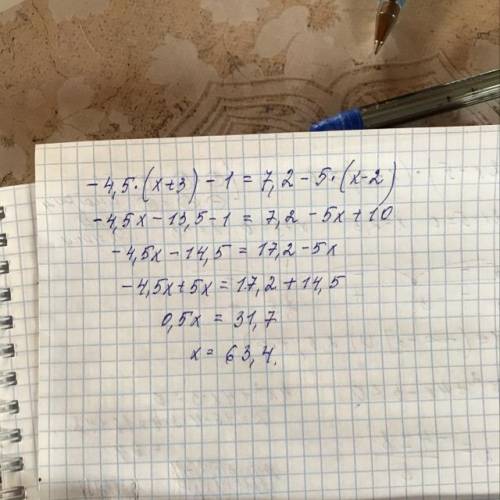 -4,5·(x+3)-1=7,2-5·(x-2)
-4,5x-13,5-1=7,2-5x+10
-4,5x-14,5=17,2-5x
-4,5x+5x=17,2+14,5
0,5x=31,7
x=63,4.